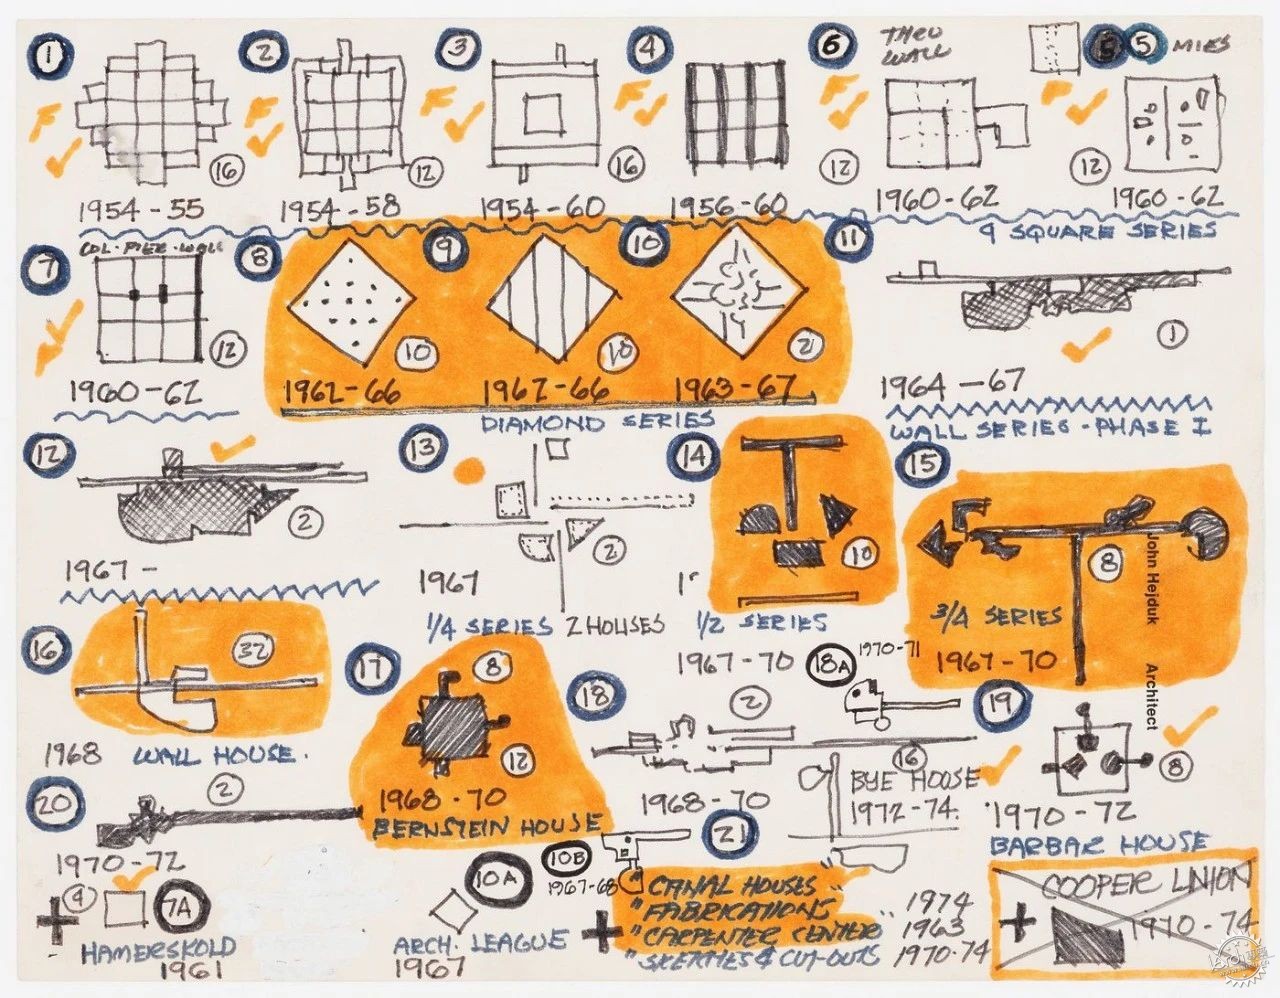 1 2 3 4 6 THRU WALL 5 5 MIES
F F F F F F
16 12 16 12 12
1954-55 1954-58 1954-60 1956-60 1960-62 1960-62
9 SQUARE SERIES
COL·PIER·WALL
7 8 9 10 11
12 10 10 2 1
1960-62 1962-66 1962-66 1963-67 1964-67
DIAMOND SERIES WALL SERIES-PHASE I
12 13 14 15
2 2 10 8
1967- 1967
1/4 SERIES 2 HOUSES 1/2 SERIES 3/4 SERIES
1967-70 1967-70
John Hejduk Architect
16 32 17 8 12 18 2 18A 1970-71 19
1968 WALL HOUSE.
1968-70
BERNSTEIN HOUSE
1968-70
16
BYE HOUSE
1972-74.
8
1970-72
BARBAR HOUSE
20 2
1970-72
4 7A
HAMERSKOLD
1961
10A
ARCH. LEAGUE
1967
10B
1967-68
21
"CANAL HOUSES" 1974
"FABRICATIONS"
"CARPENTER CENTER" 1963
"SKETCHES & CUT-OUTS 1970-74
COOPER UNION
1970-74